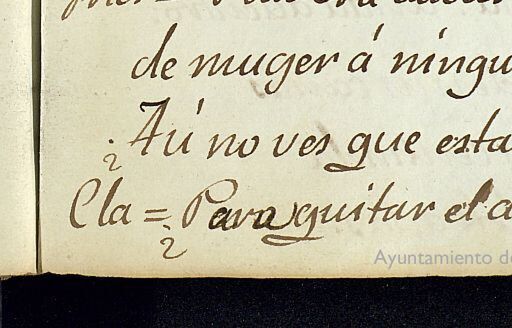 de muger á ningu
¿Tú no ves que esta
Cla = ¿Para quitar el a
Ayuntamiento de